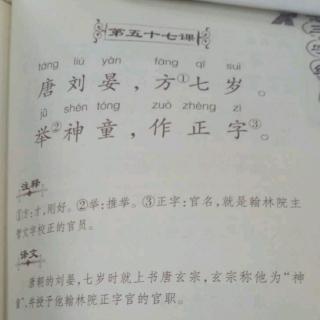 第五十七课
táng liú yàn fāng qī suì
唐刘晏，方①七岁。
jǔ shén tóng zuò zhèng zì
举②神童，作正字③。
注释
①方:才,刚好。②举:推举。③正字:官名,就是翰林院主
管文学校正的官员。
译文
唐朝的刘晏，七岁时就上书唐玄宗，玄宗称他为“神
童”,并授予他翰林院正字官的官职。